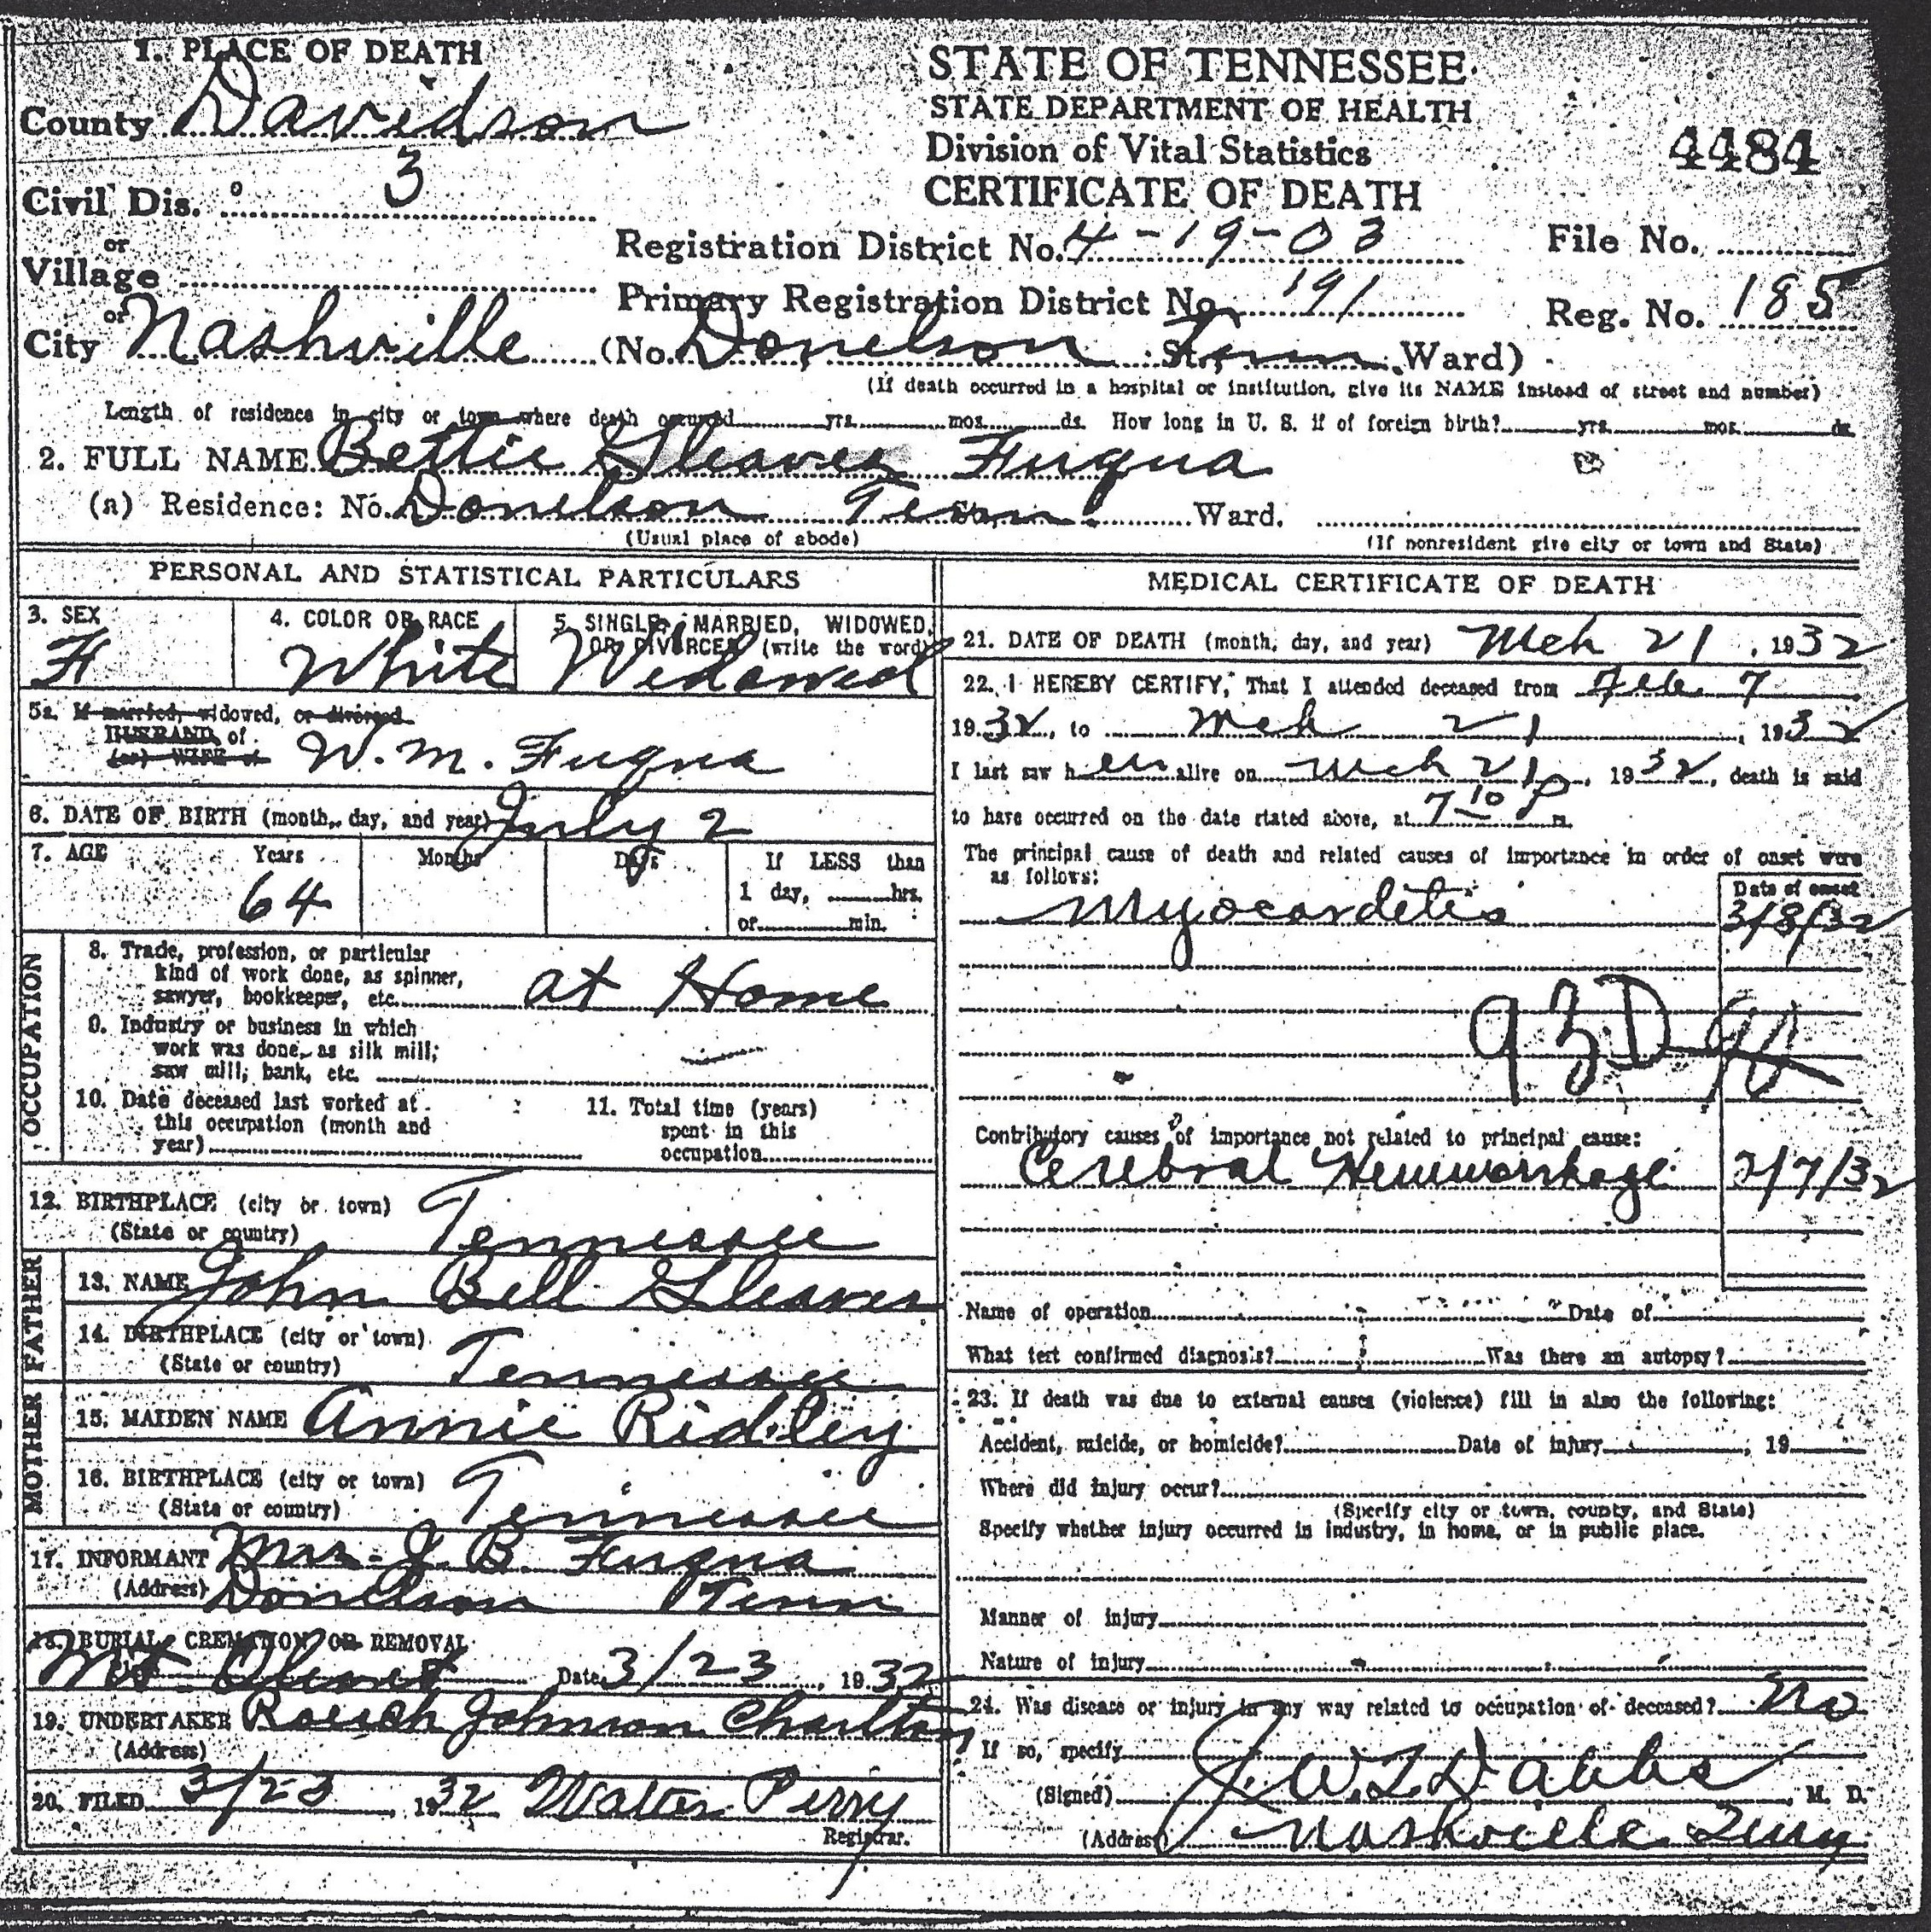 1. PLACE OF DEATH
STATE OF TENNESSEE
STATE DEPARTMENT OF HEALTH
Division of Vital Statistics
CERTIFICATE OF DEATH
4484
County Davidson
Civil Dis. 3
or
Village
or
City Nashville (No. Donelson St., Tenn. Ward)
Registration District No. 4-19-03
File No.
Primary Registration District No. 191
Reg. No. 185
(If death occurred in a hospital or institution, give its NAME instead of street and number)
Length of residence in city or town where death occurred yrs. mos. ds. How long in U. S. if of foreign birth? yrs. mos. ds.
2. FULL NAME Bettie Gleaves Fuqua
(a) Residence: No. Donelson Tenn. Ward.
(Usual place of abode) (If nonresident give city or town and State)
PERSONAL AND STATISTICAL PARTICULARS
3. SEX F
4. COLOR OR RACE White
5. SINGLE, MARRIED, WIDOWED, OR DIVORCED (write the word) Widowed
5a. If married, widowed, or divorced
HUSBAND of
(or) WIFE of W. M. Fuqua
6. DATE OF BIRTH (month, day, and year) July 2
7. AGE Years 64 Months Days If LESS than
1 day, hrs.
or min.
OCCUPATION
8. Trade, profession, or particular
kind of work done, as spinner,
sawyer, bookkeeper, etc. at Home
9. Industry or business in which
work was done, as silk mill;
saw mill; bank, etc.
10. Date deceased last worked at
this occupation (month and
year)
11. Total time (years)
spent in this
occupation
12. BIRTHPLACE (city or town)
(State or country) Tennessee
FATHER
13. NAME John Bell Gleaves
14. BIRTHPLACE (city or town)
(State or country) Tennessee
MOTHER
15. MAIDEN NAME Annie Ridley
16. BIRTHPLACE (city or town)
(State or country) Tennessee
17. INFORMANT Mrs. J. B. Fuqua
(Address) Donelson Tenn
18. BURIAL, CREMATION OR REMOVAL
Mt. Olivet Date 3/23, 1932
19. UNDERTAKER Roesch Johnson Charlton
(Address)
20. FILED 3/23, 1932 Walter Perry
Registrar.
MEDICAL CERTIFICATE OF DEATH
21. DATE OF DEATH (month, day, and year) Mch 21, 1932
22. I HEREBY CERTIFY, That I attended deceased from Feb. 7
1932, to Mch 21, 1932
I last saw her alive on Mch 21, 1932, death is said
to have occurred on the date stated above, at 7 10 P m.
The principal cause of death and related causes of importance in order of onset were
as follows:
Date of onset
Myocardetis 3/8/32
93D
Contributory causes of importance not related to principal cause:
Cerebral Hemmorrhage 2/7/32
Name of operation Date of
What test confirmed diagnosis? Was there an autopsy?
23. If death was due to external causes (violence) fill in also the following:
Accident, suicide, or homicide? Date of injury, 19
Where did injury occur?
(Specify city or town, county, and State)
Specify whether injury occurred in industry, in home, or in public place.
Manner of injury
Nature of injury
24. Was disease or injury in any way related to occupation of deceased? No
If so, specify
(Signed) J. W. Dabbs, M. D.
(Address) Nashville Tenn